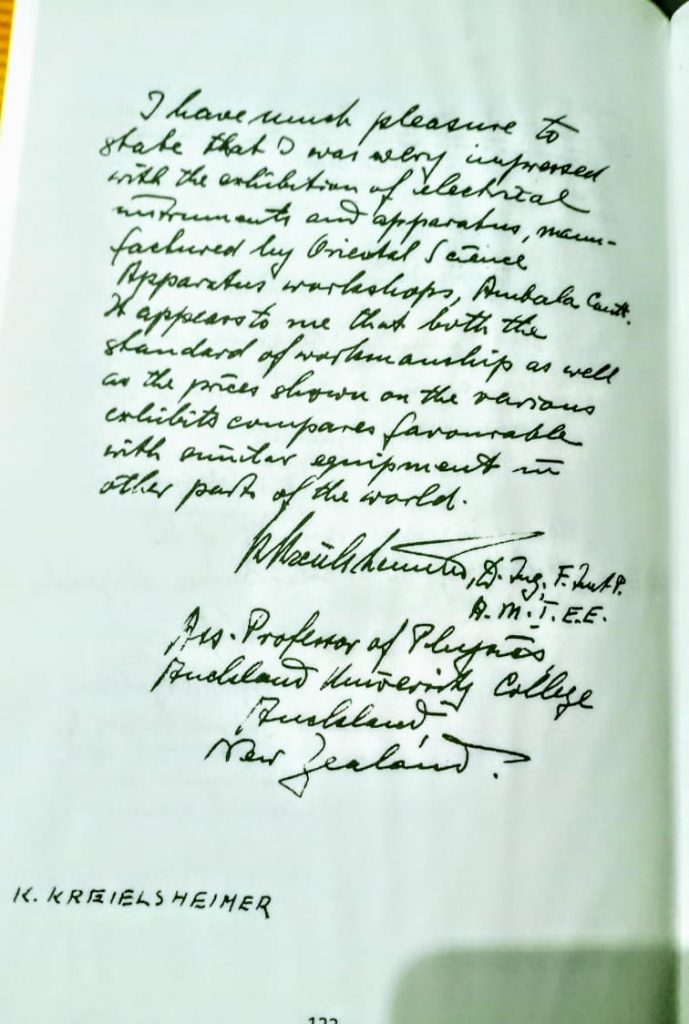 I have much pleasure to
state that I was very impressed
with the exhibition of electrical
instruments and apparatus, manu-
factured by Oriental Science
Apparatus workshops, Ambala Cantt.
It appears to me that both the
standard of workmanship as well
as the prices shown on the various
exhibits compares favourable
with similar equipment in
other parts of the world.
K Kreielsheimer, D. Ing, F. Inst P.
A.M.I.E.E.
Ass. Professor of Physics,
Auckland University College
Auckland,
New Zealand.
K. KREIELSHEIMER